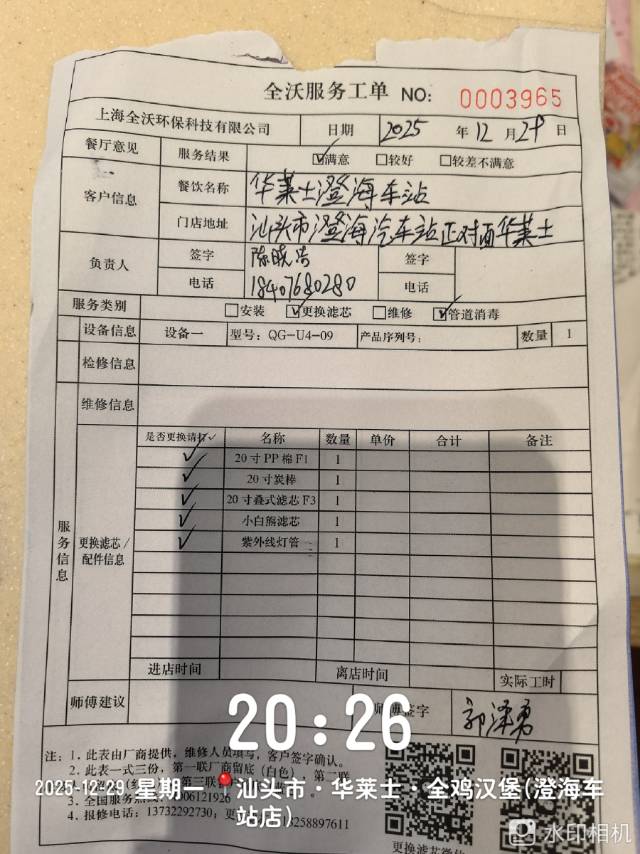 全沃服务工单 NO: 0003965
上海全沃环保科技有限公司 日期 2025 年 12 月 29 日
餐厅意见 服务结果 ☑满意 ☐较好 ☐较差不满意
客户信息 餐饮名称 华莱士澄海车站
门店地址 汕头市澄海汽车站正对面华莱士
负责人 签字 陈晓浩 签字
电话 18407680280 电话
服务类别 ☐安装 ☑更换滤芯 ☐维修 ☑管道消毒
设备信息 设备一 型号: QG-U4-09 产品序列号: 数量 1
检修信息
维修信息
服务信息
更换滤芯/配件信息
是否更换请打✓ 名称 数量 单价 合计 备注
✓ 20寸PP棉F1 1
✓ 20寸炭棒 1
✓ 20寸叠式滤芯F3 1
✓ 小白熊滤芯 1
✓ 紫外线灯管 1
进店时间 离店时间 实际工时
师傅建议 师傅签字 郭泽勇
20:26
注: 1. 此表由厂商提供, 维修人员填写, 客户签字确认。
2. 此表一式三份, 第一联厂商留底(白色), 第二联
2025-12-29 星期一 汕头市·华莱士·全鸡汉堡(澄海车站店)
第三联
3. 全国服务热线 006121926
4. 报修电话: 13732292730; 13258897611
更换滤芯微信
水印相机